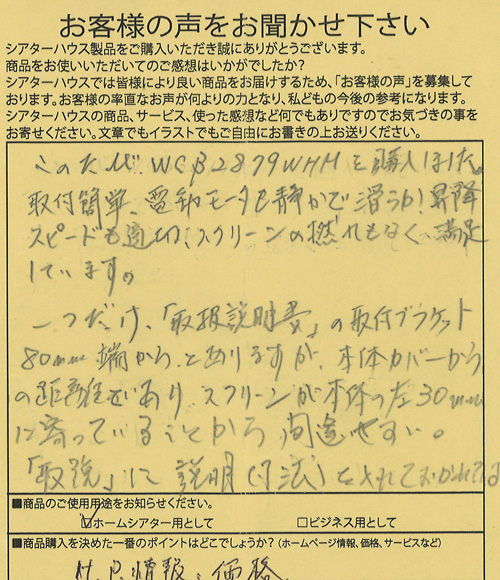 お客様の声をお聞かせ下さい
シアターハウス製品をご購入いただき誠にありがとうございます。
商品をお使いいただいてのご感想はいかがでしたか?
シアターハウスでは皆様により良い商品をお届けするため、「お客様の声」を募集して
おります。お客様の率直なお声が何よりの力となり、私どもの今後の参考になります。
シアターハウスの商品、サービス、使った感想など何でもありですのでお気づきの事を
お寄せください。文章でもイラストでもご自由にお書きの上お送りください。
このたび、WCB2879WHMを購入しました。
取付簡単、電動モータも静かで滑らか!昇降
スピードも適切、スクリーンの撚れもなく、満足
しています。
一つだけ、「取扱説明書」の取付ブラケット
80mm端から、とありますが、本体カバーから
の距離であり、スクリーンが本体の左30mm
に寄っていることから間違やすい。
「取説」に説明(寸法)を
■商品のご使用用途をお知らせください。
☑ホームシアター用として □ビジネス用として
■商品購入を決めた一番のポイントはどこでしょうか?(ホームページ情報、価格、サービスなど)
情報、価格